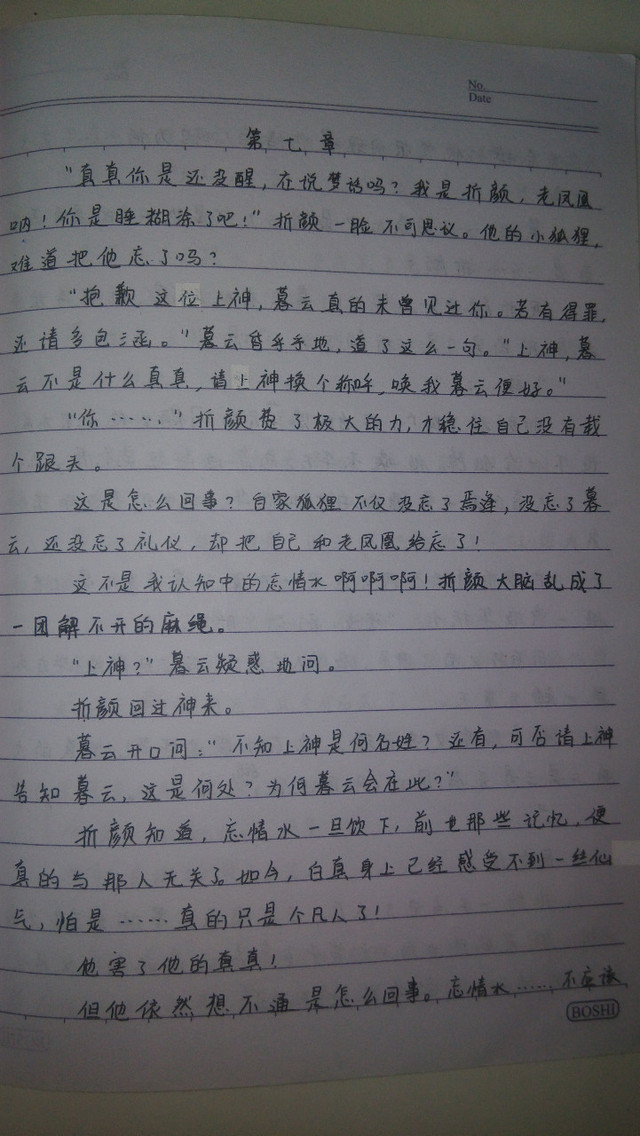 No.
Date
第七章
“真真你是还没醒，在说梦话吗？我是折颜，老凤凰
呐！你是睡糊涂了吧！”折颜一脸不可思议。他的小狐狸，
难道把他忘了吗？
“抱歉这位上神，暮云真的未曾见过你。若有得罪，
还请多包涵。”暮云乎乎地，道了这么一句。“上神，暮
云不是什么真真，请上神换个称呼，唤我暮云便好。”
“你……”折颜费了极大的力，才稳住自己没有栽
个跟头。
这是怎么回事？自家狐狸不仅没忘了焉逢，没忘了暮
云，还没忘了礼仪，却把自己和老凤凰给忘了！
这不是我认知中的忘情水啊啊啊！折颜大脑乱成了
一团解不开的麻绳。
“上神？”暮云疑惑地问。
折颜回过神来。
暮云开口问：“不知上神是何名姓？还有，可否请上神
告知暮云，这是何处？为何暮云会在此？”
折颜知道，忘情水一旦饮下，前世那些记忆，便
真的与那人无关了。如今，白真身上已经感受不到一丝仙
气，怕是……真的只是个凡人了！
他害了他的真真！
但他依然想不通是怎么回事。忘情水……不应该
BOSHI